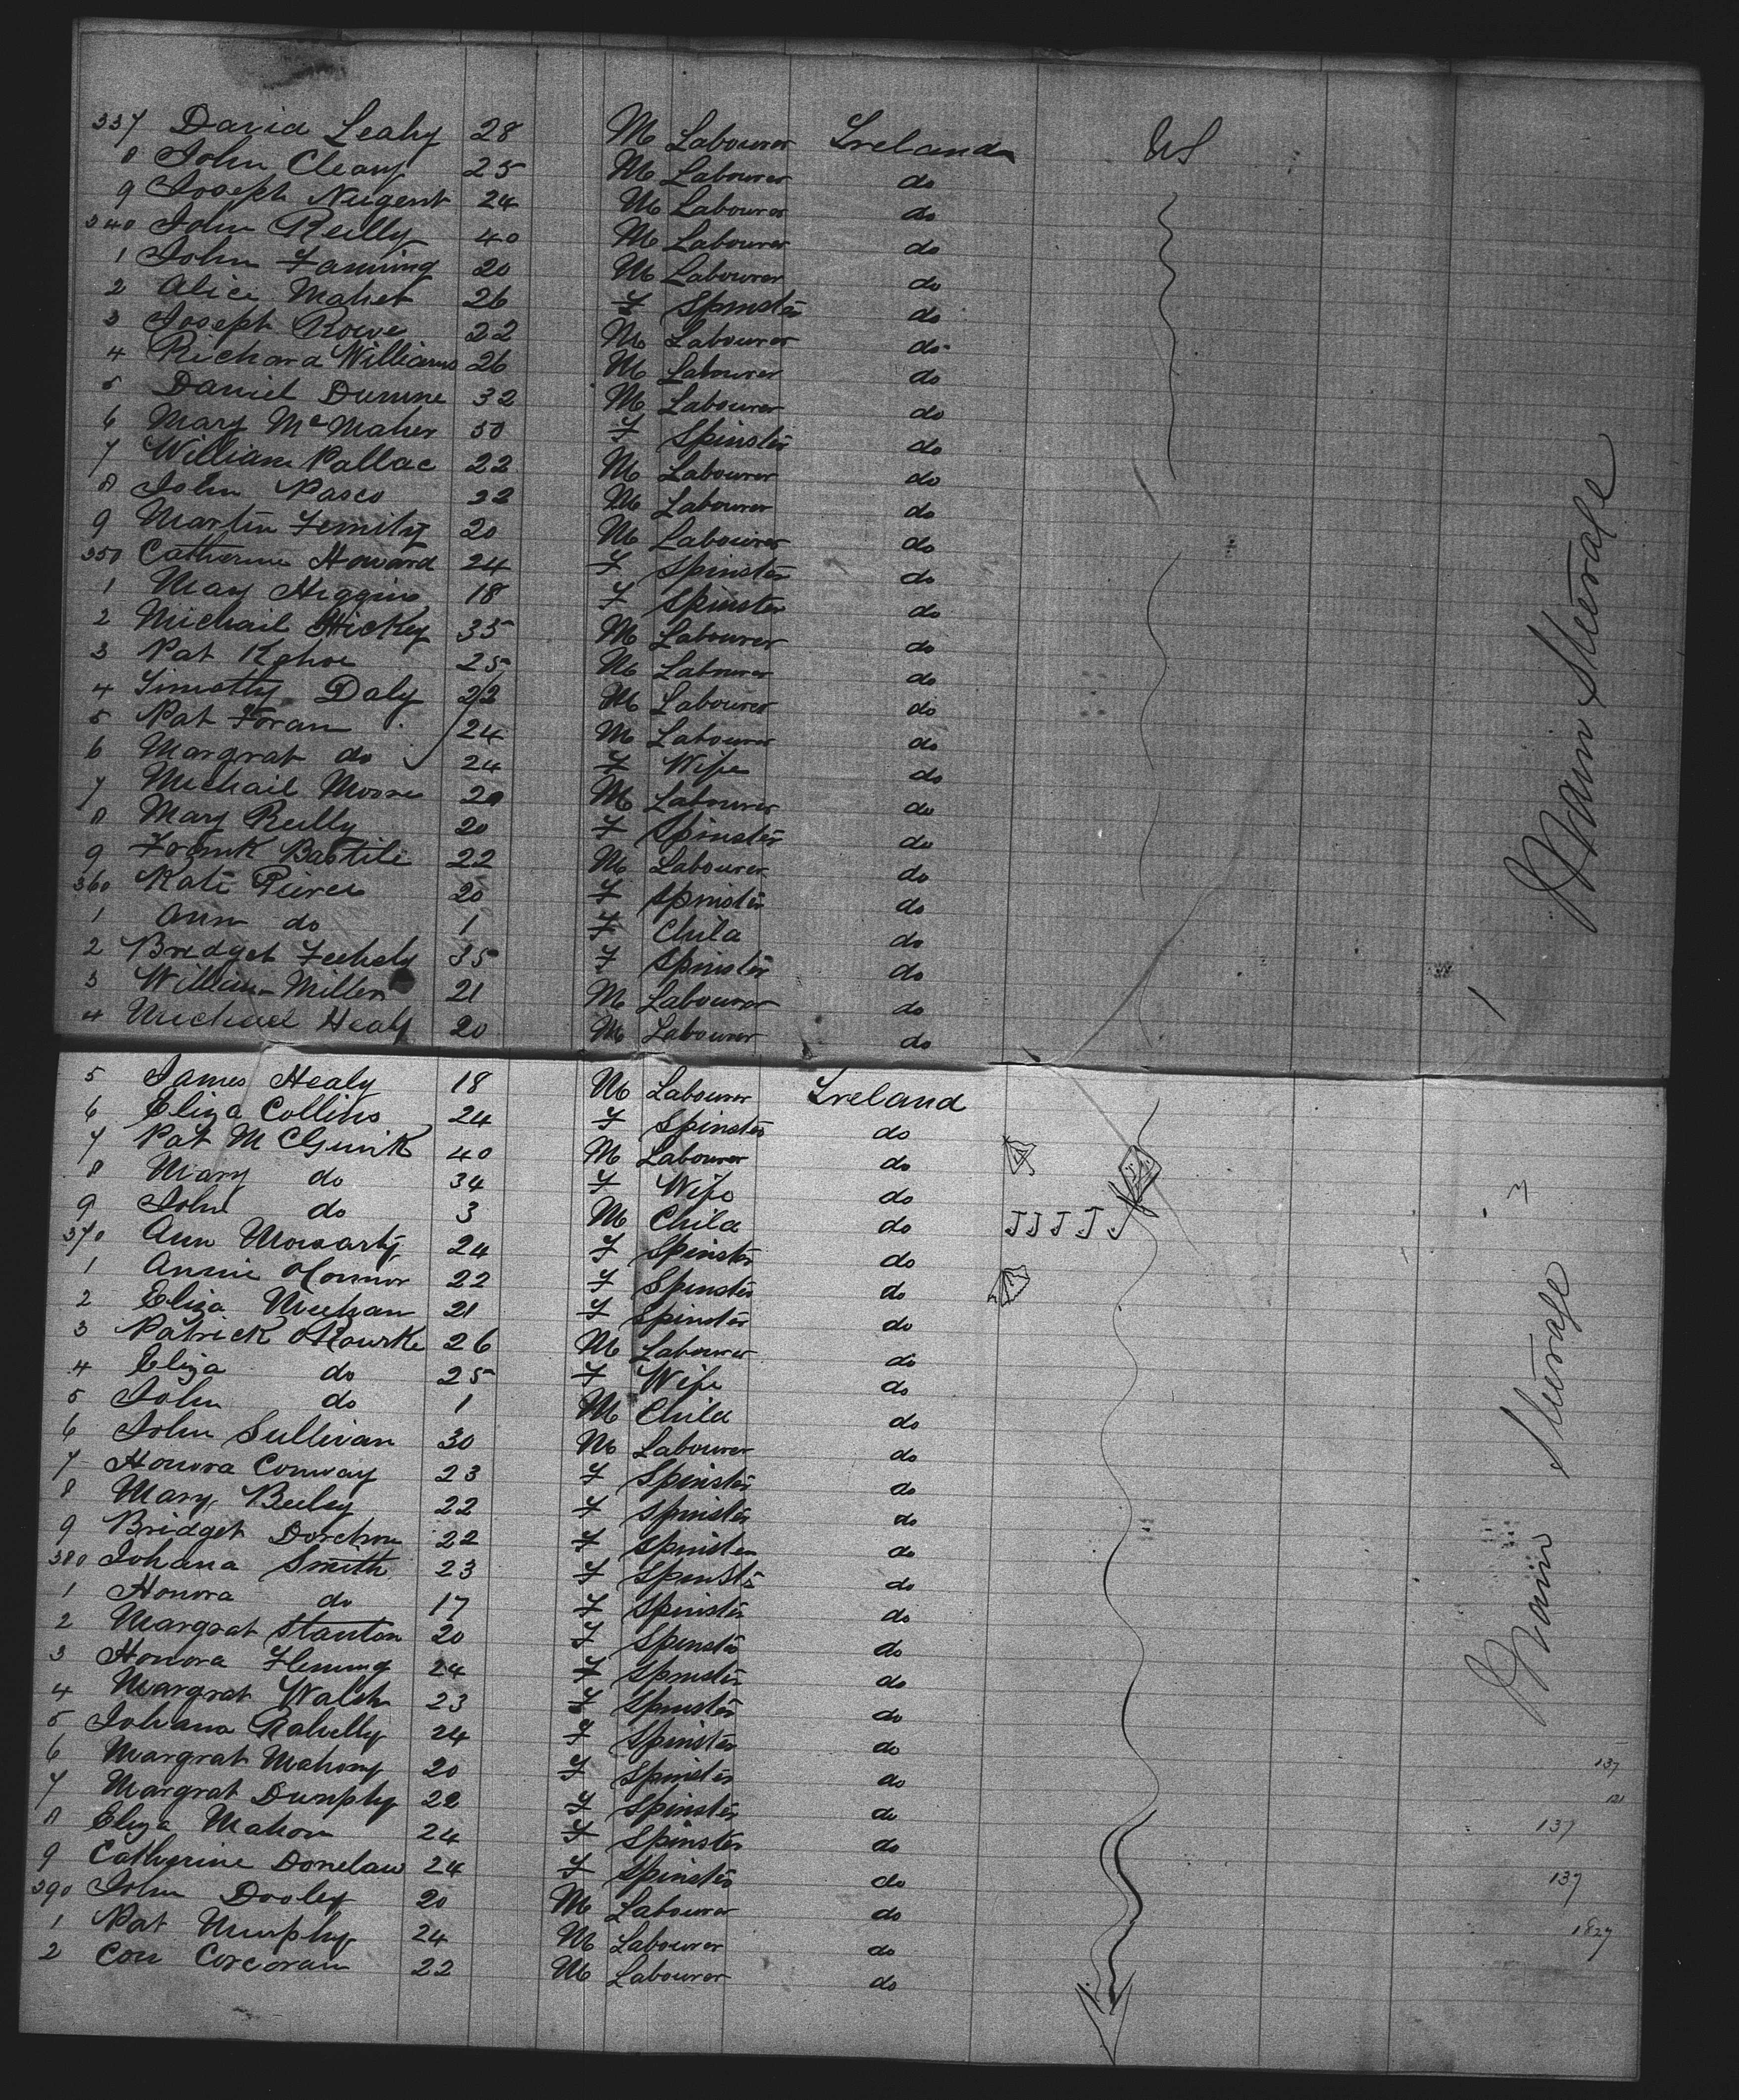 337 David Leahy 28 M Labourer Ireland US
8 John Cleary 25 M Labourer do
9 Joseph Nugent 24 M Labourer do
340 John Reilly 40 M Labourer do
1 John Fanning 20 M Labourer do
2 Alice Maher 26 F Spinster do
3 Joseph Rowe 22 M Labourer do
4 Richard Williams 26 M Labourer do
5 Daniel Dunne 32 M Labourer do
6 Mary McMaher 50 F Spinster do
7 William Pallac 22 M Labourer do
8 John Pasco 22 M Labourer do
9 Martin 20 M Labourer do
350 Catherine Howard 24 F Spinster do
1 May Higgins 18 F Spinster do
2 Michail Hickey 35 M Labourer do
3 Pat Kehoe 25 M Labourer do
4 Timothy Daly 23 M Labourer do
5 Pat Foran 24 M Labourer do
6 Margrat do 24 F Wife do
7 Michail Moore 20 M Labourer do
8 Mary Reilly 20 F Spinster do
9 Frank Bastile 22 M Labourer do
360 Kate Pierce 20 F Spinster do
1 Ann do 1 F Child do
2 Bridget 35 F Spinster do
3 William Miller 21 M Labourer do
4 Michael Healy 20 M Labourer do
Main Steerage
5 James Healy 18 M Labourer Ireland
6 Eliza Collins 24 F Spinster do
7 Pat McGurik 40 M Labourer do
8 Mary do 34 F Wife do
9 John do 3 M Child do J J J J J
370 Ann Moriarty 24 F Spinster do
1 Annie OConnor 22 F Spinster do
2 Eliza Meehan 21 F Spinster do
3 Patrick ORourke 26 M Labourer do
4 Eliza do 25 F Wife do
5 John do 1 M Child do
6 John Sullivan 30 M Labourer do
7 Honora Conway 23 F Spinster do
8 Mary Beeley 22 F Spinster do
9 Bridget 22 F Spinster do
380 Johana Smith 23 F Spinster do
1 Honora do 17 F Spinster do
2 Margrat Stanton 20 F Spinster do
3 Honora Fleming 24 F Spinster do
4 Margrat Walsh 23 F Spinster do
5 Johana Rahelly 24 F Spinster do
6 Margrat Mahony 20 F Spinster do
7 Margrat Dunphy 22 F Spinster do
8 Eliza Mahon 24 F Spinster do
9 Catherine Donelan 24 F Spinster do
390 John Dooley 20 M Labourer do
1 Pat Murphy 24 M Labourer do
2 Con Corcoran 22 M Labourer do
Main Steerage
137
121
137
137
1827